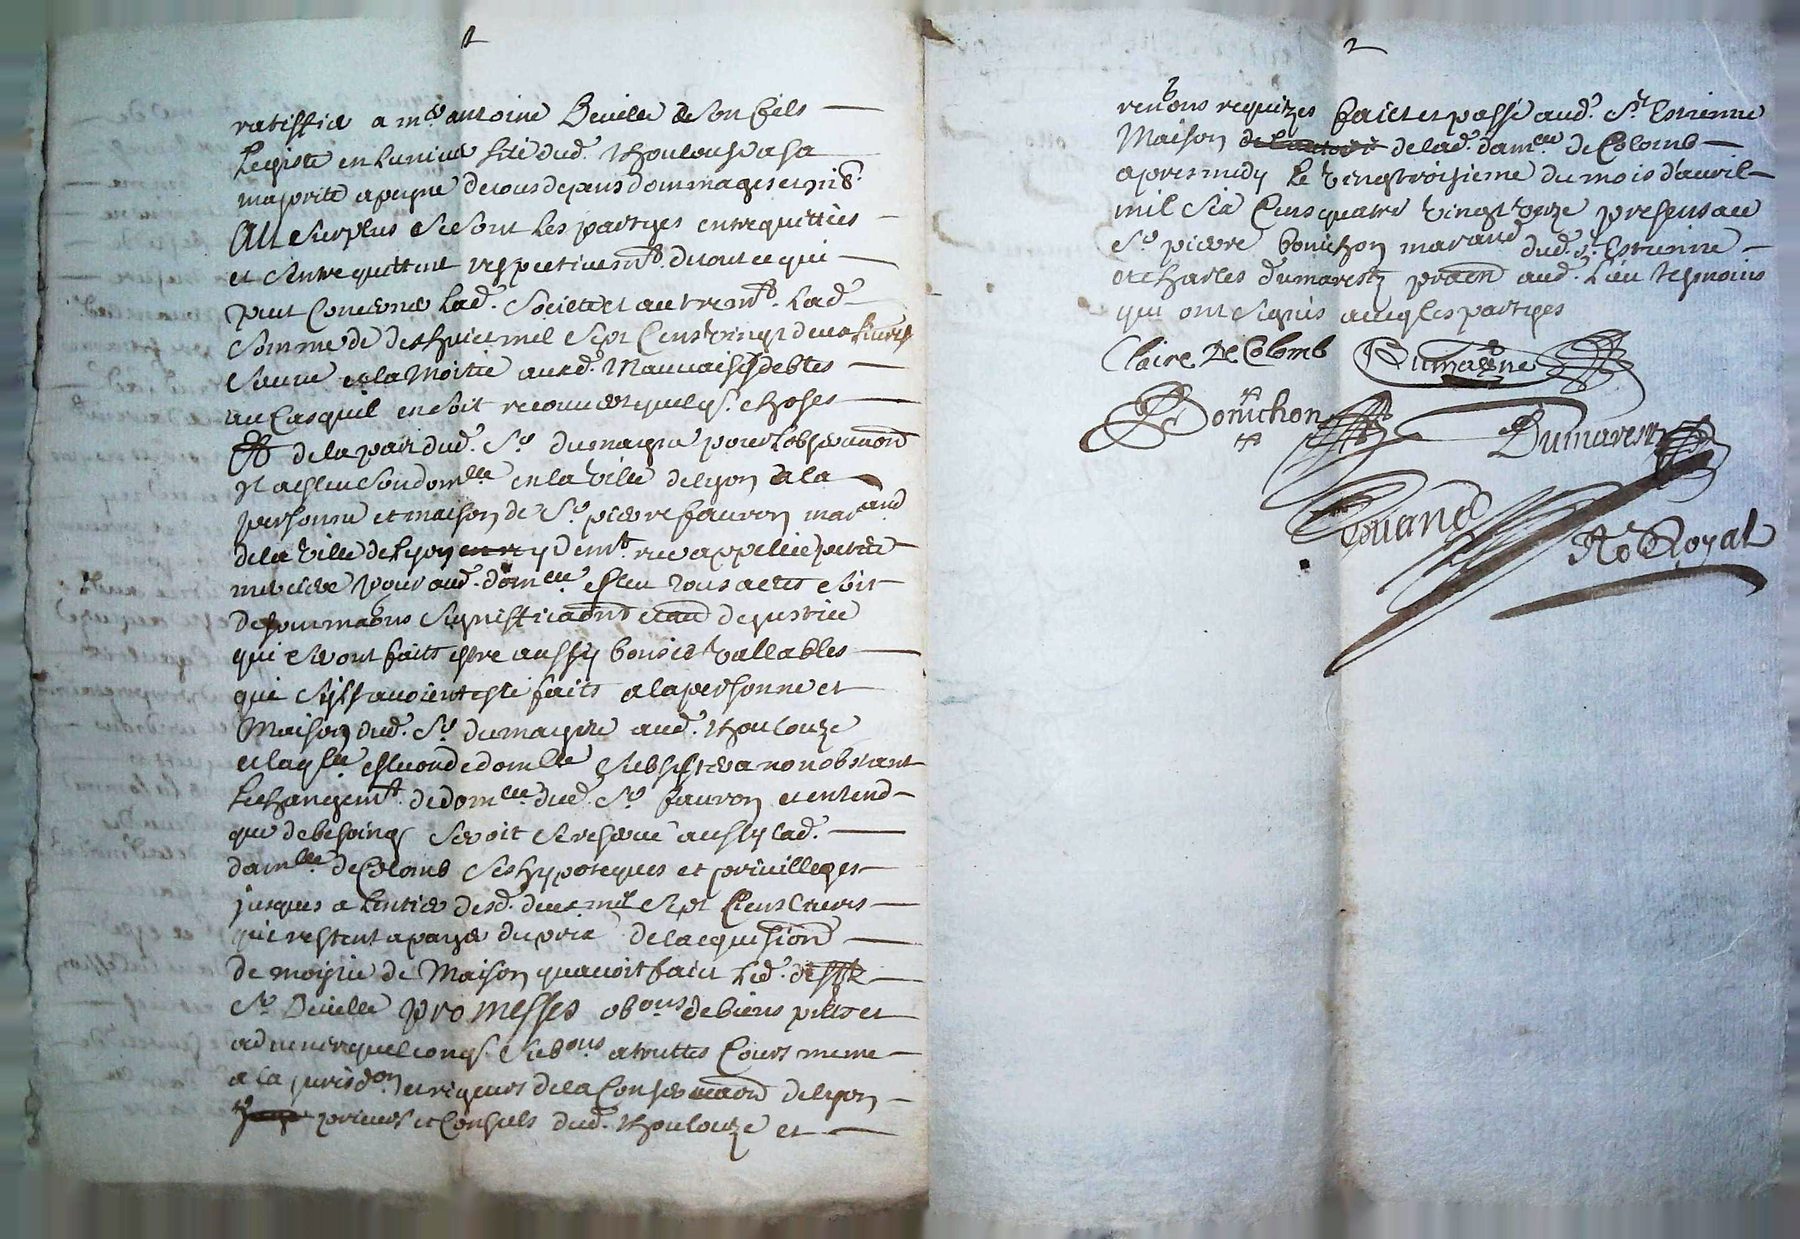 1
ratiffier a mre antoine Beuille de son fils
Legiste en Luniversite dud. Thoulouse a sa
majorite a peyne de tous depans dommages et
Au surplus se sont Les partyes entrequittées
et s'entrequittent respectivemt. de tout ce qui
peut Concerner Lad. Societte et autremt. Lad.
Somme de dixhuict mil sept Cens vingt deux livres
Sauve et la Moitié ausd. Mauvaises debtes
au Cas quil en soit recouvert quelq. choses
de la part dud. Sr. dumayne pour l'observaon
y a esleu son domlle en la ville de Lyon a la
personne et maison de Sr. pierre fauron marand
de la ville de Lyon y demt. rue appellée petite
merciere pour aud. domlle estre tous actes soit
de sommaons signifficaons et au de justice
qui seront faits estre aussy bons et vallables
que s'ils avoient esté faits a la personne et
Maison dud. Sr. dumayne aud. Thoulouze
et laqlle eslection de domlle subsistera nonobstant
Le changemt. de domlle. dud. Sr. fauron et entend
que de besoing seroit se reserve aussy lad.
damlle. de Colomb ses hypoteques et privilleges
jusques a Lentier desd. deux mil sept Cens Livres
qui restent a payer du prix de lacquisiion
de moytié de Maison quavoit faict Led.
Sr. Beuille promesses obons de biens pnts et
advenir quelconq. subons a touttes Cours meme
a la jurisdon et rigueurs de la Conservaon de Lyon
prieurs et Consuls dud. Thoulouze et
2
renons requizes faict et passé aud. St. Estienne
Maison de lad. damlle de Colomb
apres midy Le vingtroisieme du mois d'avril
mil six Cens quatre vingt unze presens a ce
Sr. pierre bonichon marand dud. St. Estienne
et charles dumarestz praen aud. Lieu tesmoins
qui ont signés avecq les partyes
Claire De Colomb Dumayne
Bonichon Dumarestz
Royal